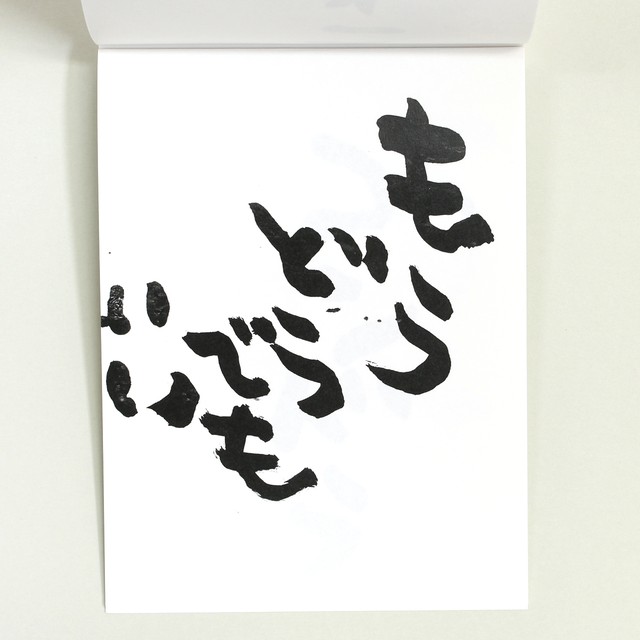 もう
どう
でも
いい